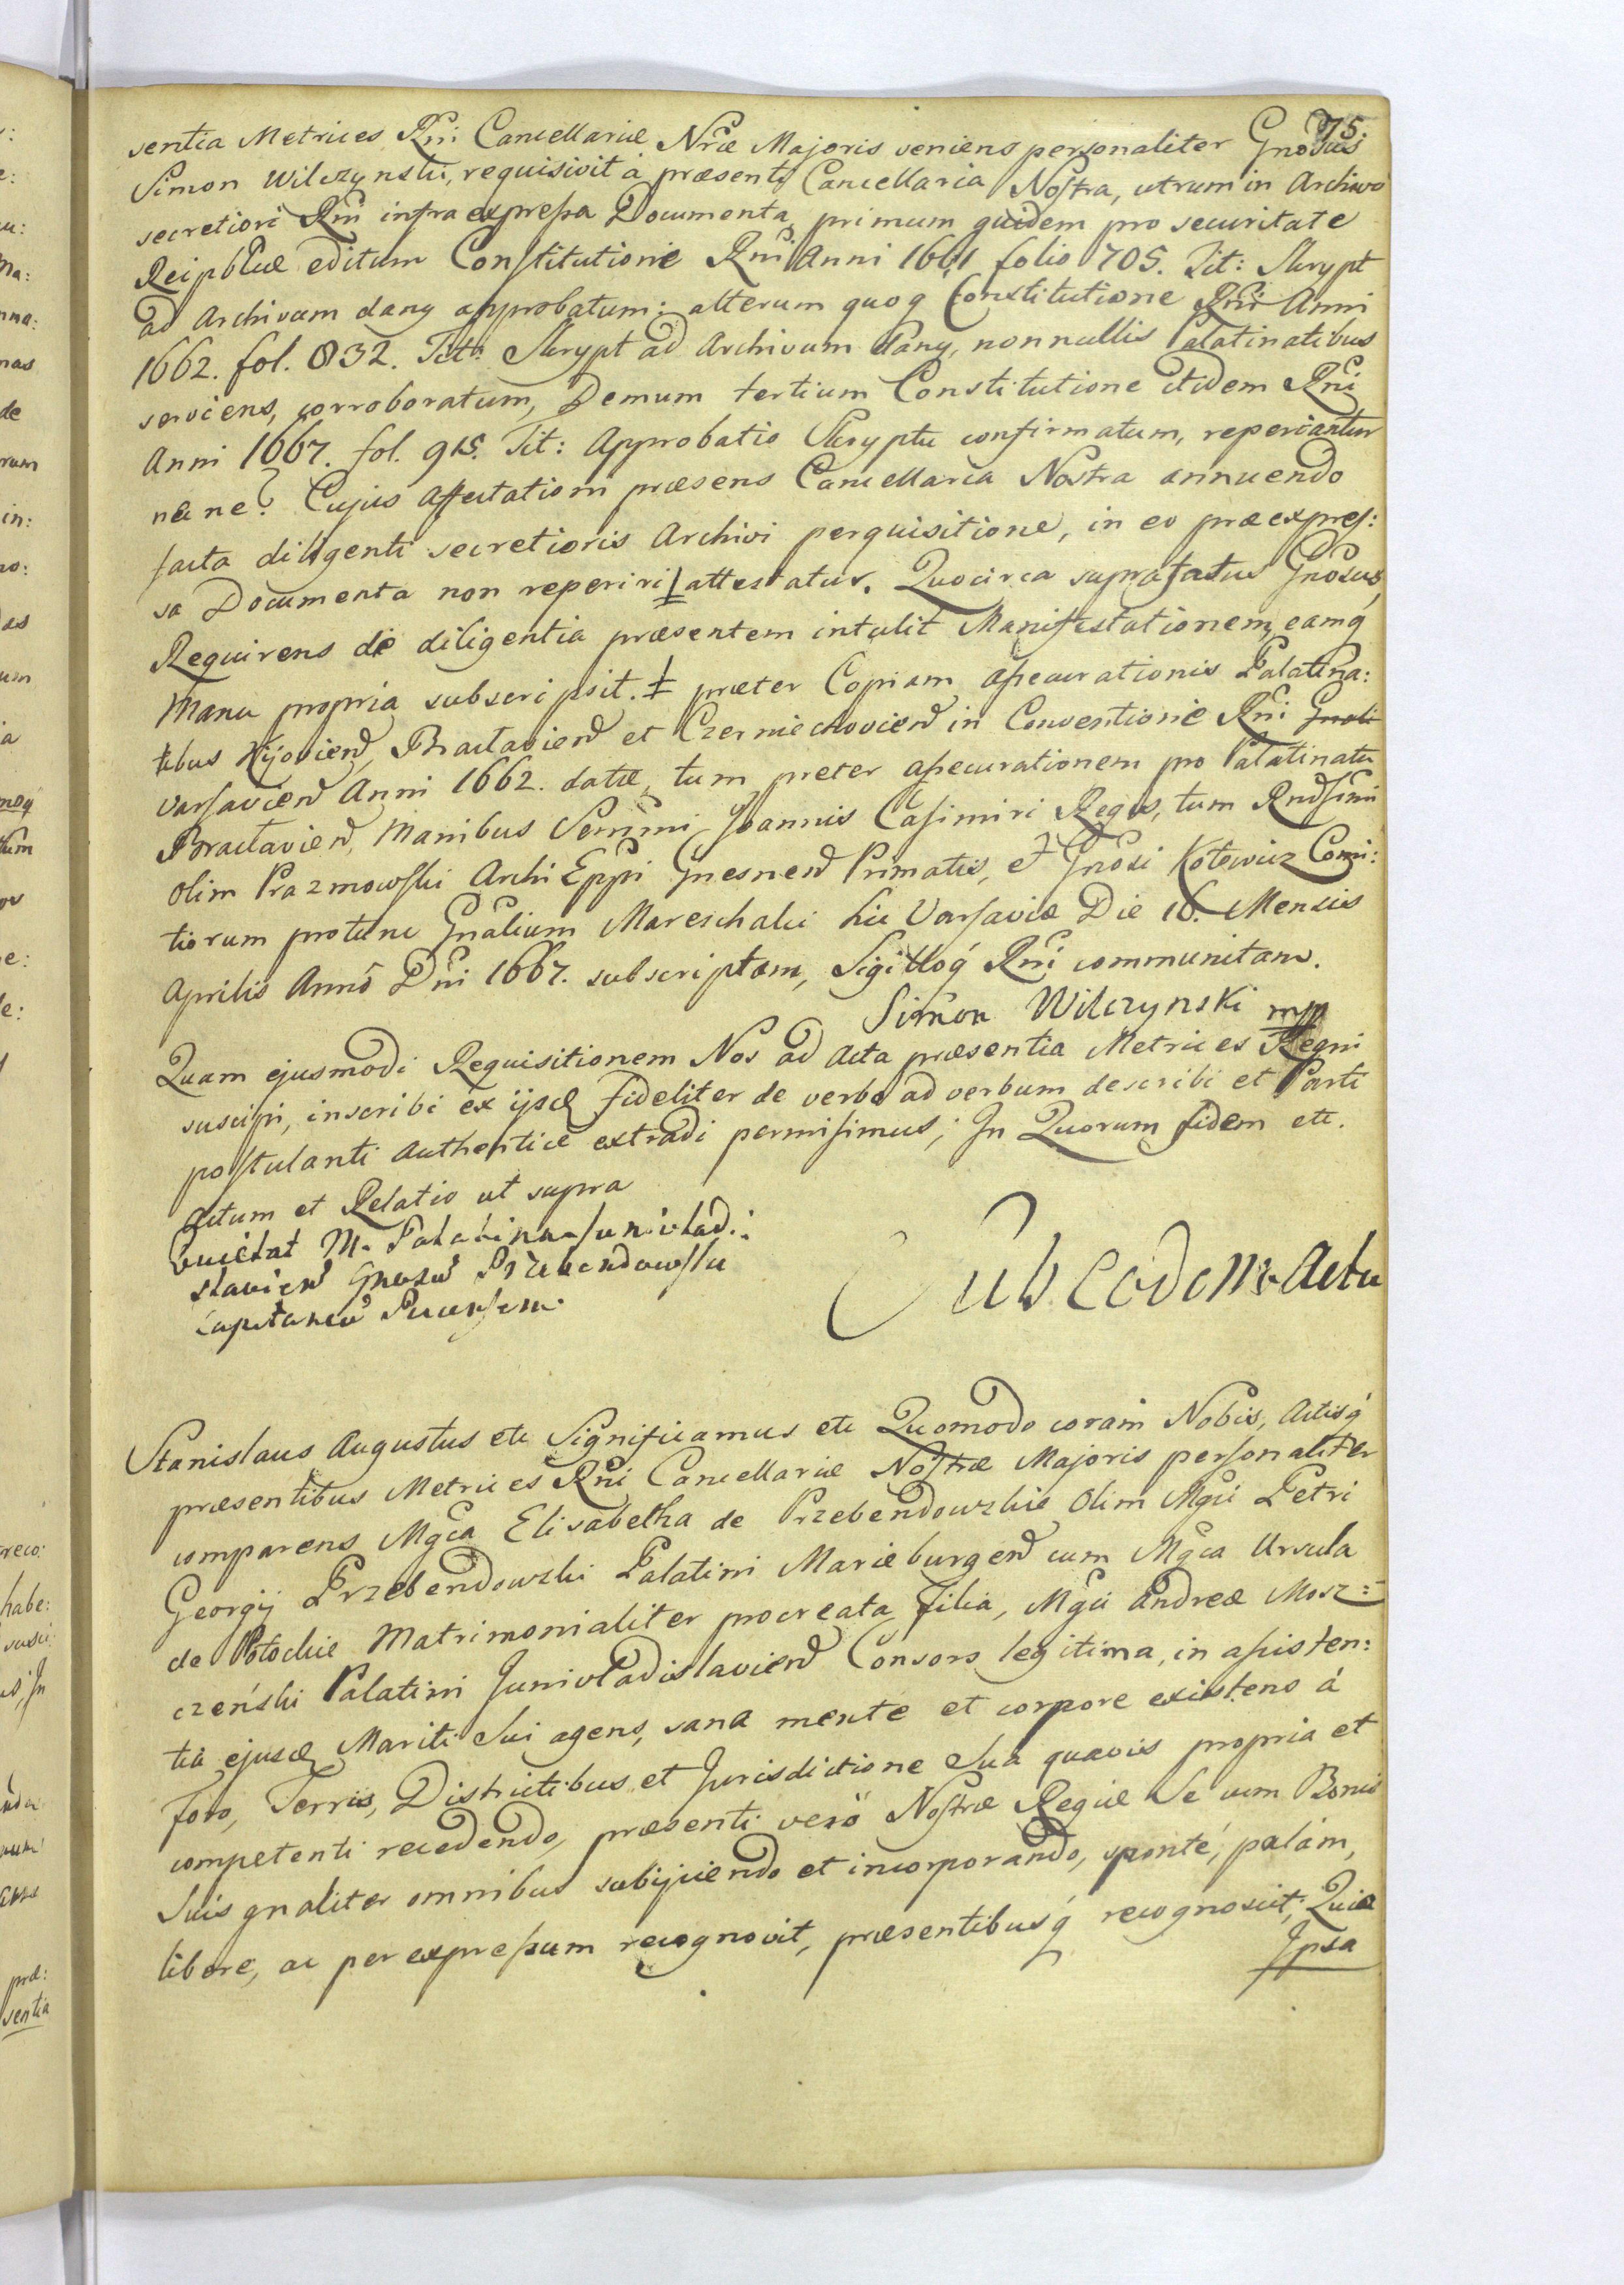 75.
sentia Metrices Rni Cancellariæ Nræ Majoris veniens personaliter Gnosus
Simon Wilczynski, requisivit à præsenti Cancellaria Nostra, utrum in Archivo
secretiori Rni infra expressa Documenta, primum quidem pro securitate
Reipblicæ editum Constitutione Rni Anni 1661 folio 705. Tit: Skrypt
ad Archivum dany approbatum; alterum quoq Constitutione Rni Anni
1662. fol. 832. Tit: Skrypt ad Archivum dany, nonnullis Palatinatibus
serviens, corroboratum, Demum tertium Constitutione itidem Rni
Anni 1667. fol. 915. Tit: Approbatio Skryptu confirmatum, reperiantur
ne ne? Cujus Affectationi præsens Cancellaria Nostra annuendo
facta diligenti secretioris Archivi perquisitione, in eo præexpres:
sa Documenta non reperiri ⱡ attestatur. Quocirca suprafatus Gnosus
Requirens de diligentia præsentem intulit Manifestationem, eamq́
Manu propria subscripsit. ‡ præter Copiam assecurationis Palatina:
tibus Kijovien, Braclavien et Czerniechovien in Conventione Rni Gnali
Varsavien Anni 1662. datæ, tum preter assecurationem pro Palatinatu
Braclavien, Manibus Sermi Joannis Casimiri Regis, tum Rndssimi
olim Prazmowski Archi Eppi Gnesnen Primatis, et Gnosi Kotowicz Comi:
tiorum protunc Gnalium Mareschalci hic Varsaviæ Die 16. Mensis
Aprilis Anno Dni 1667. subscriptam, Sigilloq́ Rni communitam.
Simon Wilczynski mp
Quam ejusmodi Requisitionem Nos ad Acta præsentia Metrices Regni
suscipi, inscribi ex ijsq fideliter de verbo ad verbum describi et Parti
postulanti authentice extradi permisimus; In Quorum fidem etc.
Actum et Relatio ut supra
Quietat M. Palatina Junivladi:
slavien Gnosu Przebendowski
Capitaneu Pucensem.
Sub eodem Actu
Stanislaus Augustus etc Significamus etc Quomodo coram Nobis, Actisq́
præsentibus Metrices Rni Cancellariæ Nostræ Majoris personaliter
comparens Mgca Elisabetha de Przebendowskie Olim Mgci Petri
Georgij Przebendowski Palatini Marieburgen cum Mgca Ursula
de Potockie Matrimonialiter procreata Filia, Mgci Andreæ Mosz=
czeński Palatini Junivladislavien Consors legitima, in assisten:
tia ejusq Mariti Sui agens, sana mente et corpore existens á
Foro, Terris, Districtibus et Jurisdictione Sua quavis propria et
competenti recedendo, præsenti vero Nostræ Regiæ Se cum Bonis
Suis gnaliter omnibus subijciendo et incorporando, sponté, palám,
libere, ac per expressum recognovit, præsentibusq́ recognoscit; Quia
Ipsa